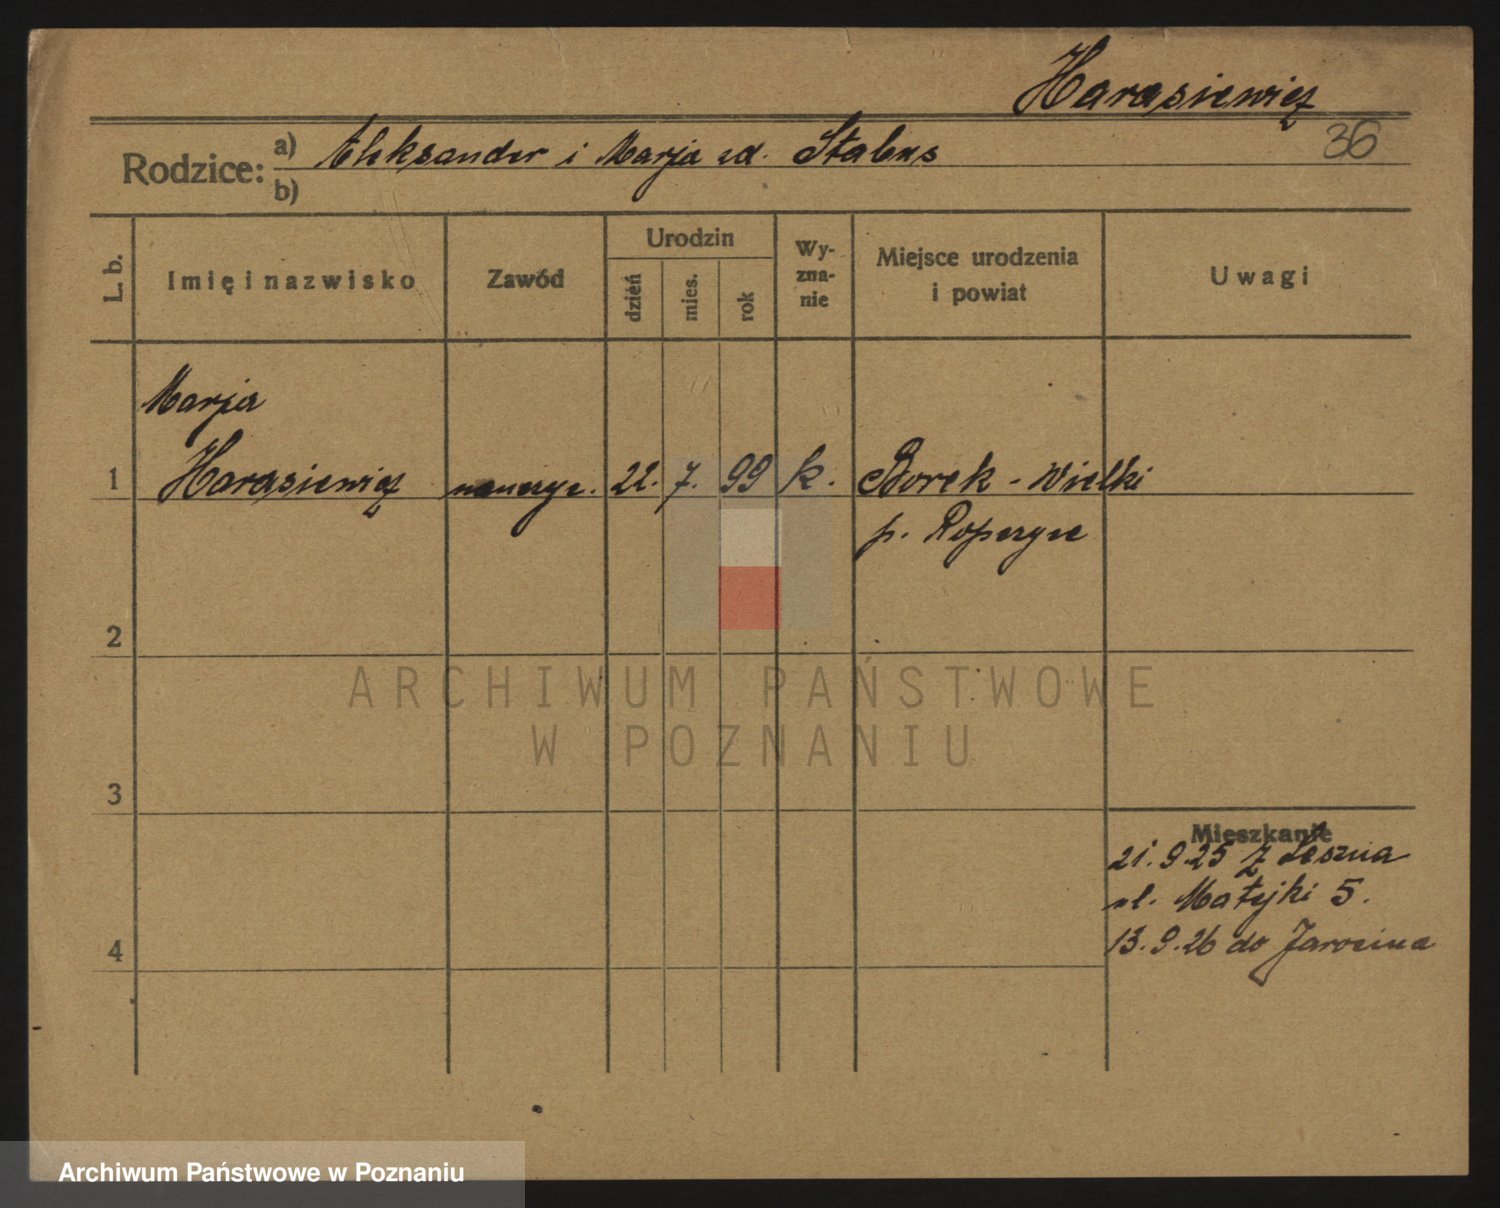 Harasiewicz
36
Rodzice: a) Aleksander i Marja zd. Stabens
b)
L. b.
Imię i nazwisko
Zawód
Urodzin
dzień
mies.
rok
Wy-
zna-
nie
Miejsce urodzenia
i powiat
Uwagi
Marja
1 Harasiewicz nauczyc. 22. 7. 99 k. Borek - Wielki
p. Ropczyce
2
3
4
Mieszkanie
21.9.25 z Leszna
ul. Matejki 5.
13.9.26 do Jarocina
ARCHIWUM PAŃSTWOWE
W POZNANIU
Archiwum Państwowe w Poznaniu